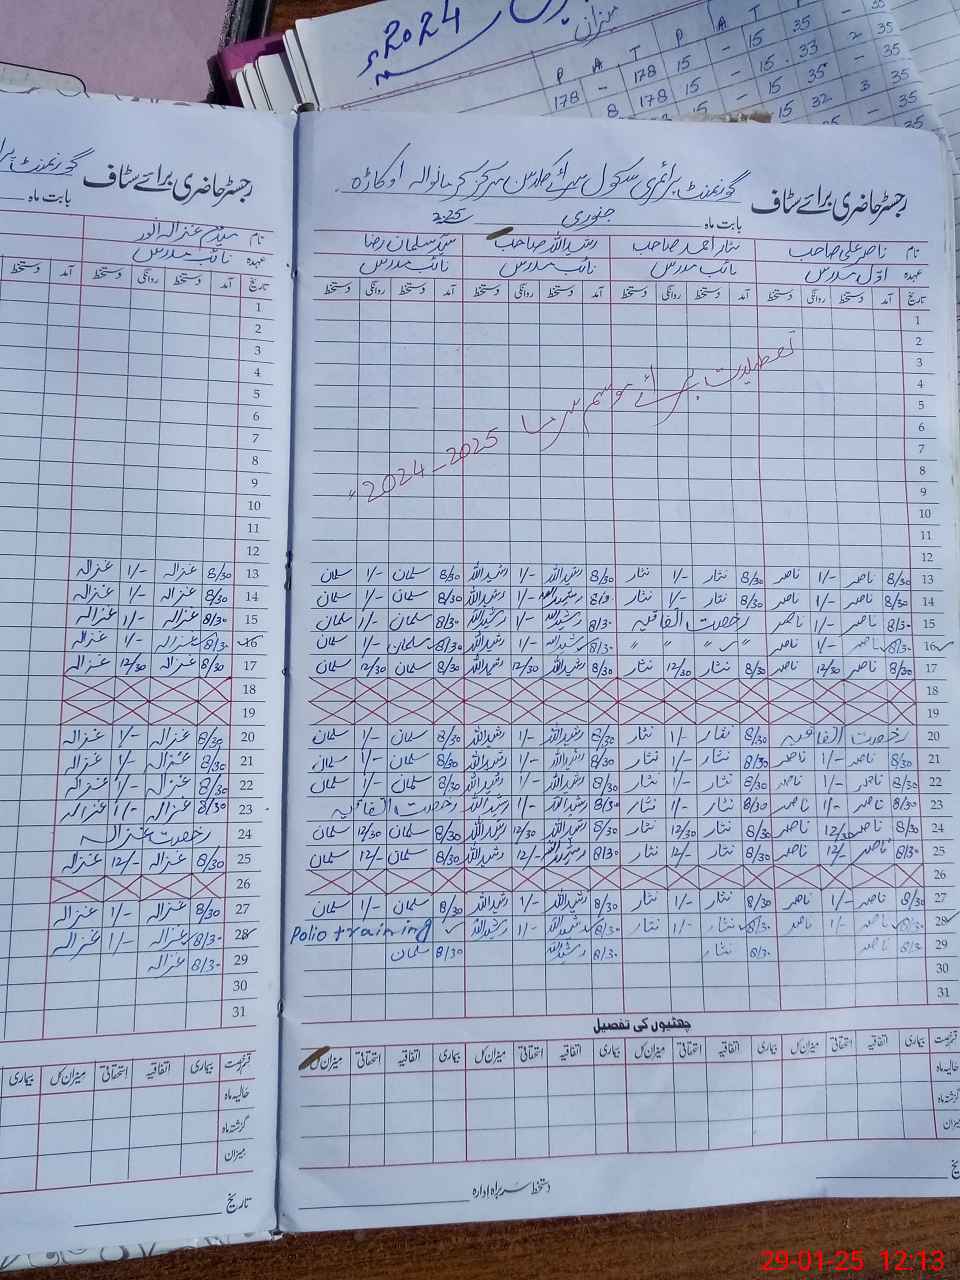 2024ء
میزان
P A T P A T
178 - 178 15 - 15 35 - 35
8 178 15 - 15 33 2 35
15 - 15 35 - 35
15 32 3 35
35
رجسٹر حاضری برائے سٹاف
بابت ماہ
نام میڈم غزالہ انور
عہدہ نائب مدرس
تاریخ آمد دستخط روانگی دستخط
1
2
3
4
5
6
7
8
9
10
11
12
13 8/30 غزالہ 1/- غزالہ
14 8/30 غزالہ 1/- غزالہ
15 8/30 غزالہ 1/- غزالہ
16 8/30 غزالہ 1/- غزالہ
17 8/30 غزالہ 12/30 غزالہ
18
19
20 8/30 غزالہ 1/- غزالہ
21 8/30 غزالہ 1/- غزالہ
22 8/30 غزالہ 1/- غزالہ
23 8/30 غزالہ 1/- غزالہ
24 رخصت غزالہ
25 8/30 غزالہ 12/- غزالہ
26
27 8/30 غزالہ 1/- غزالہ
28 8/30 غزالہ 1/- غزالہ
29 8/30 غزالہ
30
31
قسم رخصت بیماری اتفاقیہ استحقاقی میزان کل بیماری
حالیہ ماہ
گزشتہ ماہ
میزان
تاریخ
رجسٹر حاضری برائے سٹاف گورنمنٹ پرائمری سکول اوکاڑہ
بابت ماہ جنوری 2025
نام ناصر علی صاحب نثار احمد صاحب رشید اللہ صاحب سلمان رضا
عہدہ اول مدرس نائب مدرس نائب مدرس نائب مدرس
تاریخ آمد دستخط روانگی دستخط آمد دستخط روانگی دستخط آمد دستخط روانگی دستخط آمد دستخط روانگی دستخط
1
2
3
4
5
6
7
8
9
10
11
12
تعطیلات برائے موسم سرما 2024-2025ء
13 8/30 ناصر 1/- ناصر 8/30 نثار 1/- نثار 8/30 رشید اللہ 1/- رشید اللہ 8/30 سلمان 1/- سلمان
14 8/30 ناصر 1/- ناصر 8/30 نثار 1/- نثار 8/30 رشید اللہ 1/- رشید اللہ 8/30 سلمان 1/- سلمان
15 8/30 ناصر 1/- ناصر رخصت اتفاقیہ 8/30 رشید اللہ 1/- رشید اللہ 8/30 سلمان 1/- سلمان
16 8/30 ناصر 1/- ناصر " " " " 8/30 رشید اللہ 1/- رشید اللہ 8/30 سلمان 1/- سلمان
17 8/30 ناصر 12/30 ناصر 8/30 نثار 12/30 نثار 8/30 رشید اللہ 12/30 رشید اللہ 8/30 سلمان 12/30 سلمان
18
19
20 رخصت اتفاقیہ 8/30 نثار 1/- نثار 8/30 رشید اللہ 1/- رشید اللہ 8/30 سلمان 1/- سلمان
21 8/30 ناصر 1/- ناصر 8/30 نثار 1/- نثار 8/30 رشید اللہ 1/- رشید اللہ 8/30 سلمان 1/- سلمان
22 8/30 ناصر 1/- ناصر 8/30 نثار 1/- نثار 8/30 رشید اللہ 1/- رشید اللہ 8/30 سلمان 1/- سلمان
23 8/30 ناصر 1/- ناصر 8/30 نثار 1/- نثار 8/30 رشید اللہ 1/- رشید اللہ رخصت اتفاقیہ
24 8/30 ناصر 12/30 ناصر 8/30 نثار 12/30 نثار 8/30 رشید اللہ 12/30 رشید اللہ 8/30 سلمان 12/30 سلمان
25 8/30 ناصر 12/- ناصر 8/30 نثار 12/- نثار 8/30 رشید اللہ 12/- رشید اللہ 8/30 سلمان 12/- سلمان
26
27 8/30 ناصر 1/- ناصر 8/30 نثار 1/- نثار 8/30 رشید اللہ 1/- رشید اللہ 8/30 سلمان 1/- سلمان
28 8/30 ناصر 1/- ناصر 8/30 نثار 1/- نثار 8/30 رشید اللہ 1/- رشید اللہ Polio training
29 8/30 ناصر 8/30 نثار 8/30 رشید اللہ 8/30 سلمان
30
31
چھٹیوں کی تفصیل
قسم رخصت بیماری اتفاقیہ استحقاقی میزان کل بیماری اتفاقیہ استحقاقی میزان کل بیماری اتفاقیہ استحقاقی میزان کل بیماری اتفاقیہ استحقاقی میزان کل
حالیہ ماہ
گزشتہ ماہ
میزان
دستخط سربراہ ادارہ
29-01-25 12:13